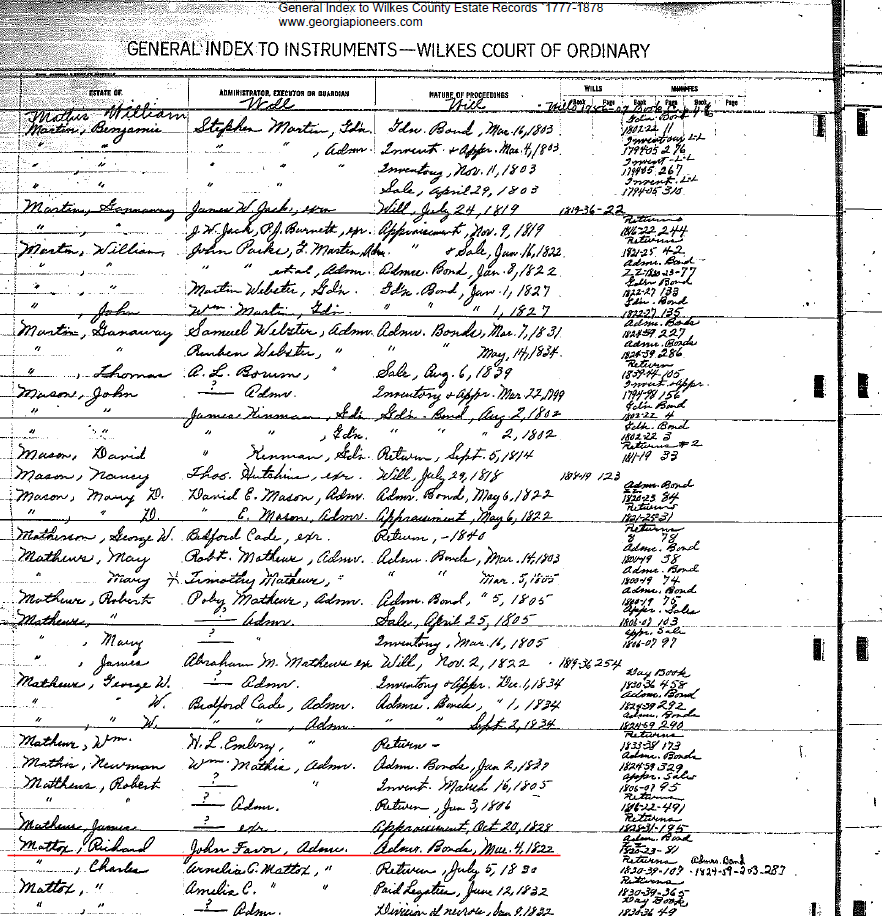 General Index to Wilkes County Estate Records 1777-1878
www.georgiapioneers.com
GENERAL INDEX TO INSTRUMENTS—WILKES COURT OF ORDINARY
ESTATE OF ADMINISTRATOR, EXECUTOR OR GUARDIAN NATURE OF PROCEEDINGS WILLS Book Page MINUTES Book Page Book Page
Mathis William Will Will
Martin, Benjamin Stephen Martin, Gdn. Gdn. Bond, Mar. 16, 1803 Gdn. Bond 1802-22 11
" " " " , Admr. Invent. & Appr. Mar. 4, 1803 1794-05 276
" " " " " Inventory, Nov. 11, 1803 1794-05 267
" " " " Sale, April 29, 1803 1794-05 310
Martin, Gannaway James W. Jack, exr. Will, July 24, 1819 1819-36-22
" " J. W. Jack, P.J. Burnett, exr. Appraisment, Nov. 9, 1819 Returns 1816-22 244
Martin, William John Parks, G. Martin, Adm. " & Sale, Jan. 16, 1822 Returns 1821-25 42
" , " " " et al, Admr. Admr. Bond, Jan. 8, 1822 Admr. Bond
" , " Martin Webster, Gdn. Gdn. Bond, Jan. 1, 1827 Gdn. Bond 1822-27 133
" , John Wm. Martin, Gdn. " " " 1, 1827 Gdn. Bond 1822-27 135
Martin, Ganaway Samuel Webster, Admr. Admr. Bonds, Mar. 7, 1831 Admr. Bonds 1824-39 227
" " Reuben Webster, " " " May, 14, 1834. Admr. Bonds 1824-39 286
" , Thomas A. L. Borum, " Sale, Aug. 6, 1839 Return 1839-41 105
Mason, John ? Admr. Inventory & Appr. Mar. 22, 1799 Invent. & Appr. 1794-98 156
" " James Kinman, Gdn. Gdn. Bond, Aug. 2, 1802 Gdn. Bond 1802-22 4
" " " , Gdn. " " " 2, 1802 Gdn. Bond 1802-22 3
Mason, David " Kinman, Gdn. Return, Sept. 5, 1814 Returns #2 1811-19 33
Mason, Nancy Thos. Hutchins, exr. Will, July 29, 1818 1818-19 123
Mason, Mary D. David E. Mason, Admr. Adm. Bond, May 6, 1822 Adm. Bond 1820-23 84
" , " D. " E. Mason, Admr. Appraisment, May 6, 1822 Returns 1821-25-31
Mathinson, George W. Bedford Cade, exr. Return, -1840 Returns 78
Mathews, May Robt. Mathews, Admr. Admr. Bonds, Mar. 14, 1803 Admr. Bond 58
" Mary Timothy Mathews, " " " Mar. 5, 1805 Admr. Bond 1800-19 74
Mathews, Robert Poby Mathews, Admr. Adm. Bond, " 5, 1805 Admr. Bond 1800-19 75
Mathews, " ? Admr. Sale, April 25, 1805 Appr. Sales 1806-07 103
" , Mary ? " Inventory, Mar. 16, 1805 Appr. Sale 1806-07 97
" , James Abraham M. Mathews exr Will, Nov. 2, 1822 1819-36 254
Mathews, George W. ? Admr. Inventory & Appr. Dec. 1, 1834 Day Book 1830-36 458
" , " W. Bedford Cade, Admr. Admr. Bonds, " 1, 1834 Admr. Bond 1824-39 292
" , " W. " " , Admr. " " Sept. 2, 1834 Admr. Bonds 1824-39 290
Mathews, Wm. H. L. Embry, " Return - Returns 1833-38 173
Mathis, Newman Wm. Mathis, Admr. Adm. Bonds, Jan 2, 1837 Admr. Bonds 1824-39 329
Matthews, Robert ? " Invent. March 16, 1805 Appr. Sales 1806-07 95
" " ? Admr. Return, Jan 3, 1806 Returns 1816-22-491
Mathews, James ? exr. Appraisment, Oct 20, 1828 Returns 1828-31-195
Mattox, Richard John Favor, Admr. Admr. Bonds, Mar. 4, 1822 Adm. Bond 1820-23-81
" , Charles Arnelia C. Mattox, " Return, July 5, 1830 Returns 1830-39-107 Admr. Bond 1824-39-203-287
Mattox, " Amelia C. " " Paid Legatees, June 12, 1832 Returns 1830-39-365
" , " ? Admr. Division of negroes, Jan. 9, 1832 Day Book 1830-36 49